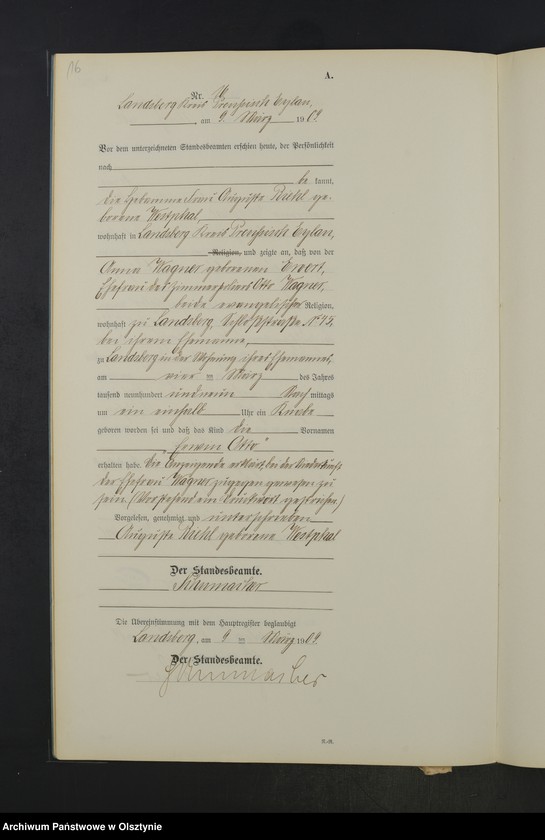 16
A.
Nr. 16
Landsberg Kreis Preußisch Eylau,
, am 9. März 1909.
Vor dem unterzeichneten Standesbeamten erschien heute, der Persönlichkeit
nach
be kannt,
die Hebamme Frau Auguste Riehl ge-
borene Westphal,
wohnhaft in Landsberg Kreis Preußisch Eylau,
Religion, und zeigte an, daß von der
Anna Wagner geborenen Ewert,
Ehefrau des Zimmerpoliers Otto Wagner,
beide evangelischer Religion,
wohnhaft zu Landsberg, Schloßstraße No 45,
bei ihrem Ehemanne,
zu Landsberg in der Wohnung ihres Ehemannes,
am vier ten März des Jahres
tausend neunhundert und neun Nachmittags
um ein einhalb Uhr ein Knabe
geboren worden sei und daß das Kind die Vornamen
"Erwin Otto"
erhalten habe. Die Anzeigende erklärt, bei der Niederkunft
der Ehefrau Wagner zugegen gewesen zu
sein. (Vorstehend ein Druckwort gestrichen)
Vorgelesen, genehmigt und unterschrieben
Auguste Riehl geborene Westphal
Der Standesbeamte.
Schumacher
Die Übereinstimmung mit dem Hauptregister beglaubigt
Landsberg, am 9 ten März 1909.
Der Standesbeamte.
Schumacher
Archiwum Państwowe w Olsztynie